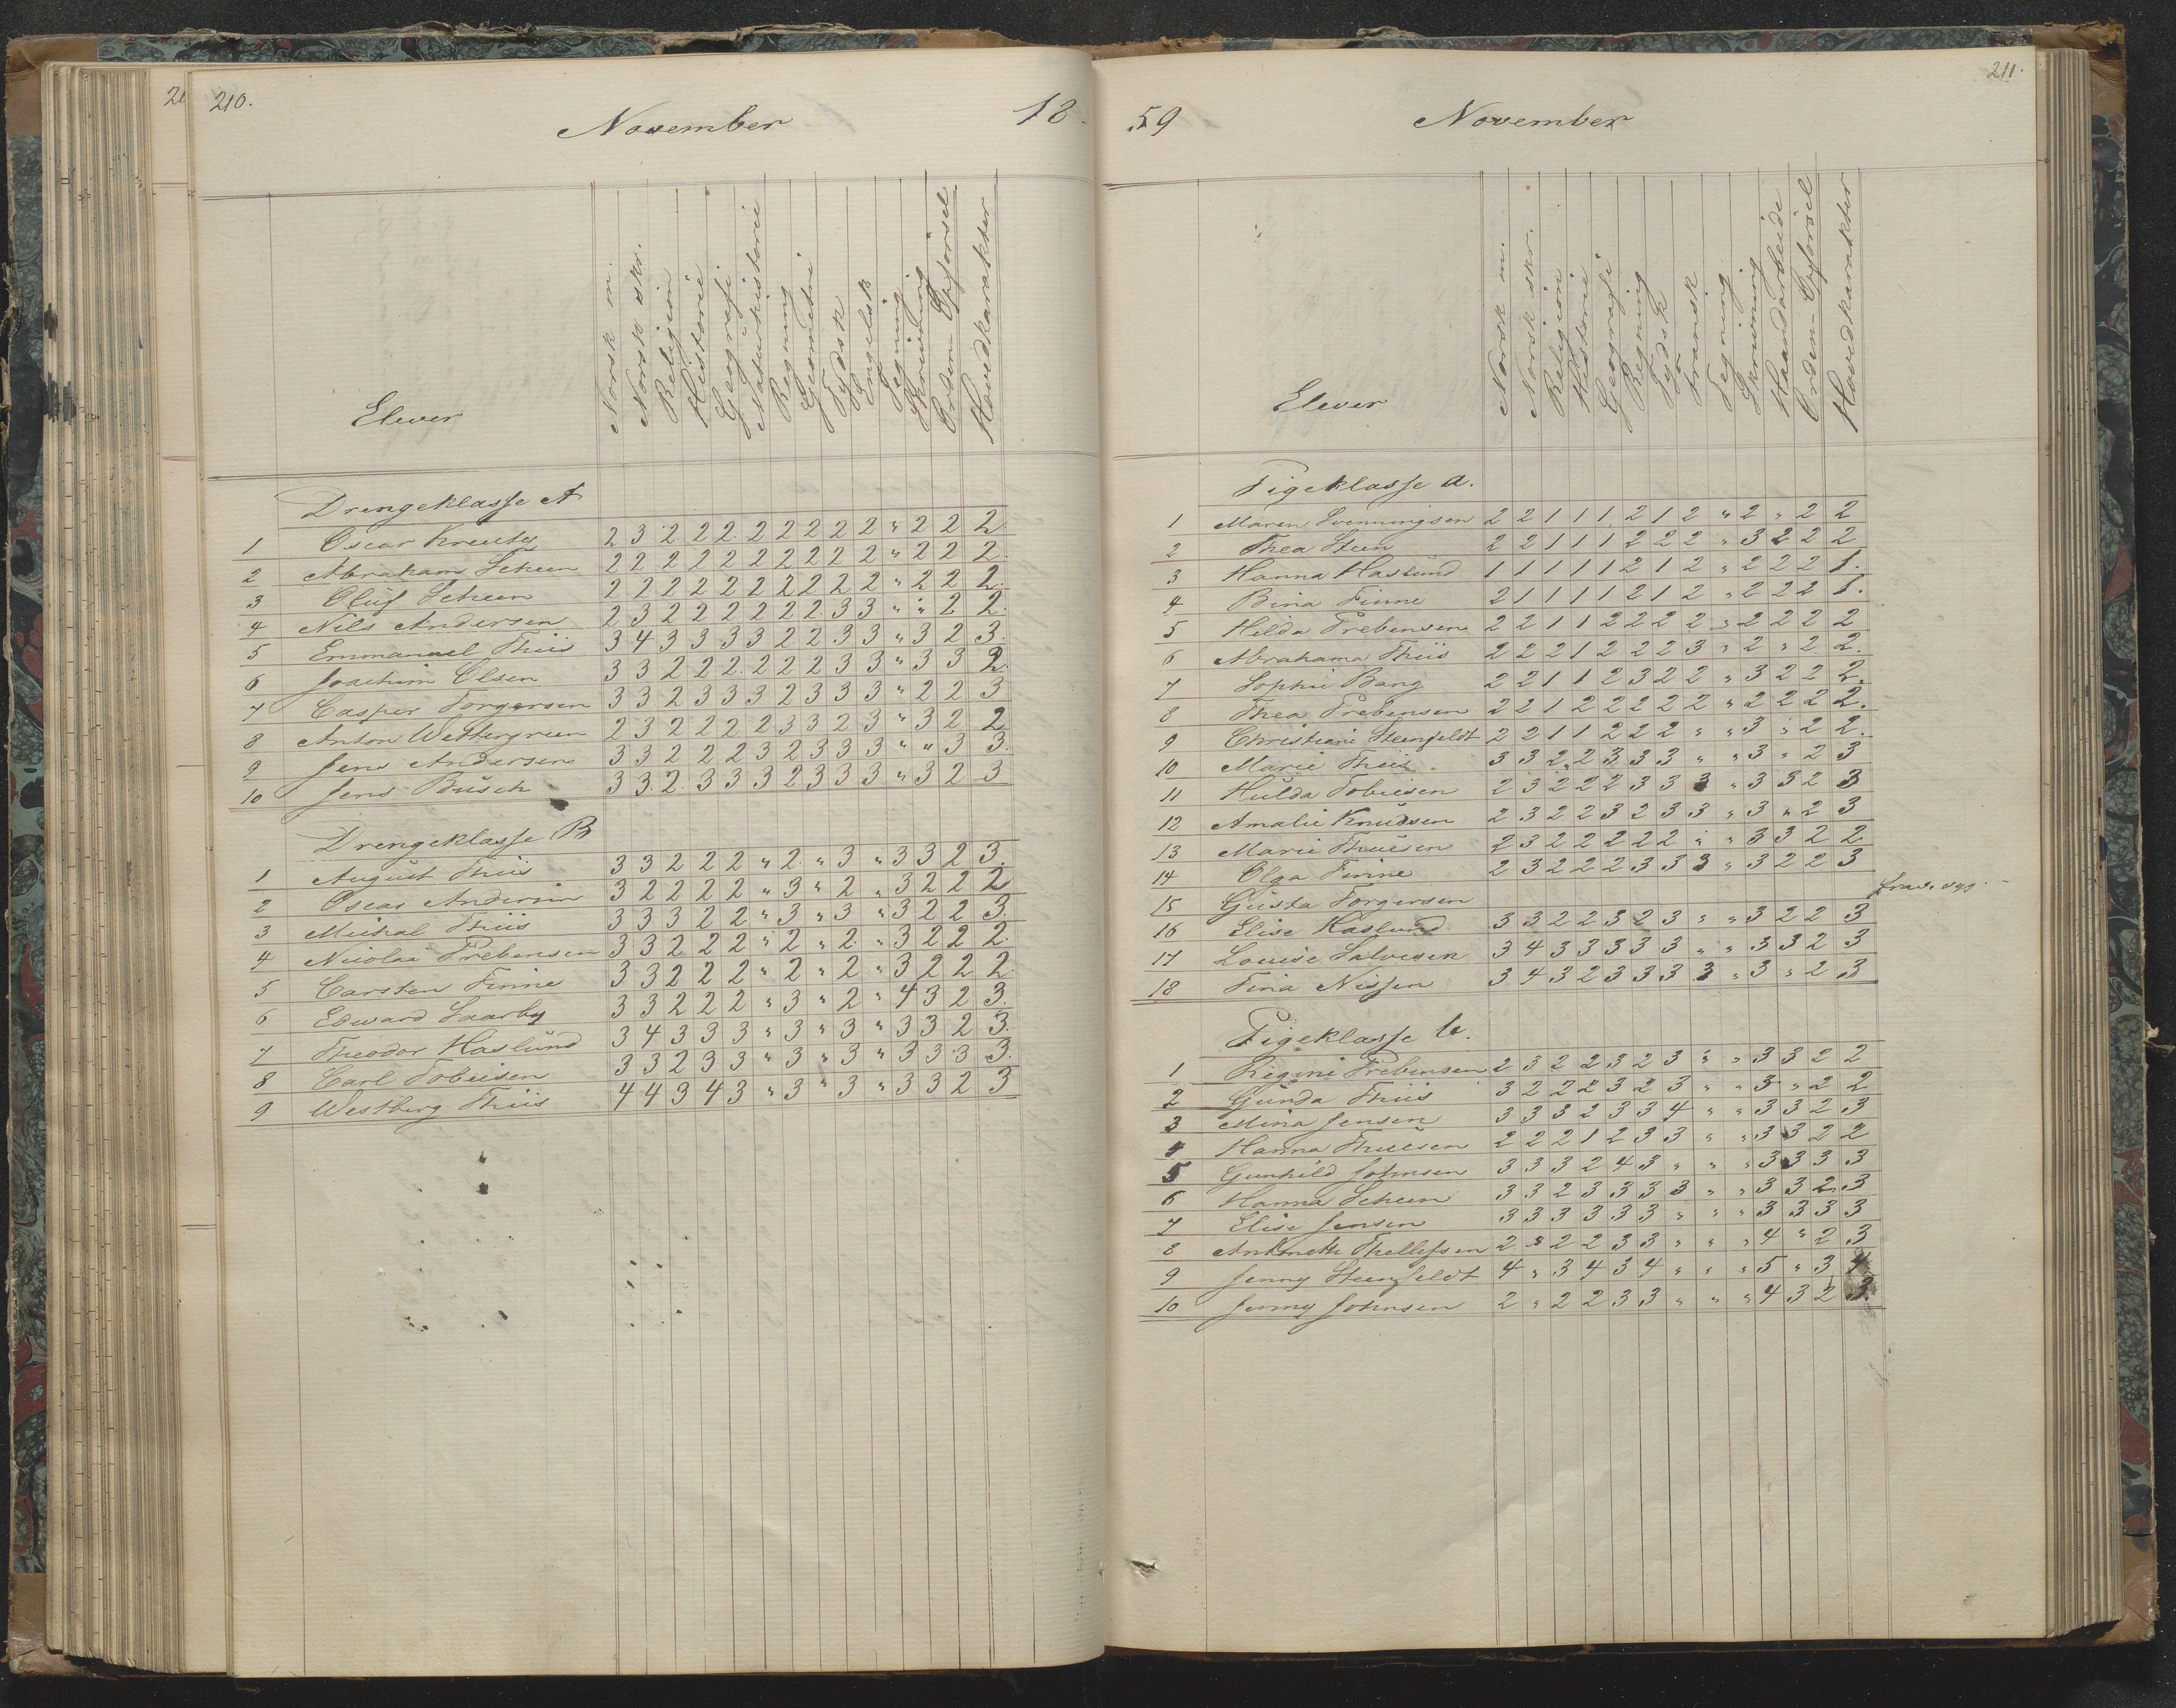 210.
November
18
Elever
Norsk m.
Norsk skr.
Religion
Historie
Geografi
Naturhistorie
Regning
Geometri
Tydsk
Engelsk
Tegning
Skrivning
Orden-Opførsel
Hovedkarakter
Drengeklasse A
1 Oscar Kreutz 2 3 2 2 2 2 2 2 2 2 " 2 2 2
2 Abraham Scheen 2 2 2 2 2 2 2 2 2 2 " 2 2 2
3 Oluf Scheen 2 2 2 2 2 2 2 2 2 2 " 2 2 2
4 Nils Andersen 2 3 2 2 2 2 2 2 3 3 " " 2 2
5 Emmanuel Thiis 3 4 3 3 3 3 2 2 3 3 " 3 2 3
6 Joachim Olsen 3 3 2 2 2 2 2 2 3 3 " 3 3 2
7 Casper Torgersen 3 3 2 3 3 3 2 3 3 3 " 2 2 3
8 Anton Wettergreen 2 3 2 2 2 2 3 3 2 3 " 3 2 2
9 Jens Andersen 3 3 2 2 2 3 2 3 3 3 " " 3 3
10 Jens Busch 3 3 2 3 3 3 2 3 3 3 " 3 2 3
Drengeklasse B
1 August Thiis 3 3 2 2 2 " 2 " 3 " 3 3 2 3
2 Oscar Andersen 3 2 2 2 2 " 3 " 2 " 3 2 2 2
3 Michal Thiis 3 3 3 2 2 " 3 " 3 " 3 2 2 3
4 Nicolai Prebensen 3 3 2 2 2 " 2 " 2 " 3 2 2 2
5 Carsten Finne 3 3 2 2 2 " 2 " 2 " 3 2 2 2
6 Edward Saarby 3 3 2 2 2 " 3 " 2 " 4 3 2 3
7 Theodor Haslund 3 4 3 3 3 " 3 " 3 " 3 3 2 3
8 Carl Tobiesen 3 3 2 3 3 " 3 " 3 " 3 3 3 3
9 Westberg Thiis 4 4 3 4 3 " 3 " 3 " 3 3 2 3
211.
59
November
Elever
Norsk m.
Norsk skr.
Religion
Historie
Geografi
Regning
Tydsk
Fransk
Tegning
Skrivning
Haandarbeide
Orden-Opførsel
Hovedkarakter
Pigeklasse a.
1 Maren Svenningsen 2 2 1 1 1 2 1 2 " 2 " 2 2
2 Thea Steen 2 2 1 1 1 2 2 2 " 3 2 2 2
3 Hanna Haslund 1 1 1 1 1 2 1 2 " 2 2 2 1.
4 Bina Finne 2 1 1 1 1 2 1 2 " 2 2 2 1.
5 Hilda Prebensen 2 2 1 1 2 2 2 2 " 2 2 2 2
6 Abrahama Thiis 2 2 2 1 2 2 2 3 " 2 " 2 2.
7 Sophie Bang 2 2 1 1 2 3 2 2 " 3 2 2 2.
8 Thea Prebensen 2 2 1 2 2 2 2 2 " 2 2 2 2.
9 Christiane Steenfeldt 2 2 1 1 2 2 2 " " 3 " 2 2.
10 Marie Thiis 3 3 2 2 3 3 3 " " 3 " 2 3
11 Hulda Tobiesen 2 3 2 2 2 3 3 3 " 3 3 2 3
12 Amalie Knudsen 2 3 2 2 3 2 3 3 " 3 " 2 3
13 Marie Thuesen 2 3 2 2 2 2 2 " " 3 3 2 2
14 Olga Finne 2 3 2 2 2 3 3 3 " 3 2 2 3
15 Gusta Torgersen
16 Elise Haslund 3 3 2 2 3 2 3 " " 3 2 2 3
17 Louise Salvesen 3 4 3 3 3 3 3 " " 3 3 2 3
18 Tina Nissen 3 4 3 2 3 3 3 3 " 3 " 2 3
Pigeklasse b.
1 Regine Prebensen 2 3 2 2 3 2 3 " " 3 3 2 2
2 Gunda Thiis 3 2 2 2 3 2 3 " " 3 " 2 2
3 Mina Jensen 3 3 3 2 3 3 4 " " 3 3 2 3
4 Hanna Thuesen 2 2 2 1 2 3 3 " " 3 3 2 2
5 Gunhild Johnsen 3 3 3 2 4 3 " " " 3 3 3 3
6 Hanna Scheen 3 3 2 3 3 3 3 " " 3 3 2 3
7 Elise Jensen 3 3 3 3 3 3 " " " 3 3 3 3
8 Thellefsen 2 3 2 2 3 3 " " " 4 " 2 3
9 Jenny Steenfeldt 4 " 3 4 3 4 " " " 5 " 3 4
10 Jenny Johnsen 2 " 2 2 3 3 " " " 4 3 2 3